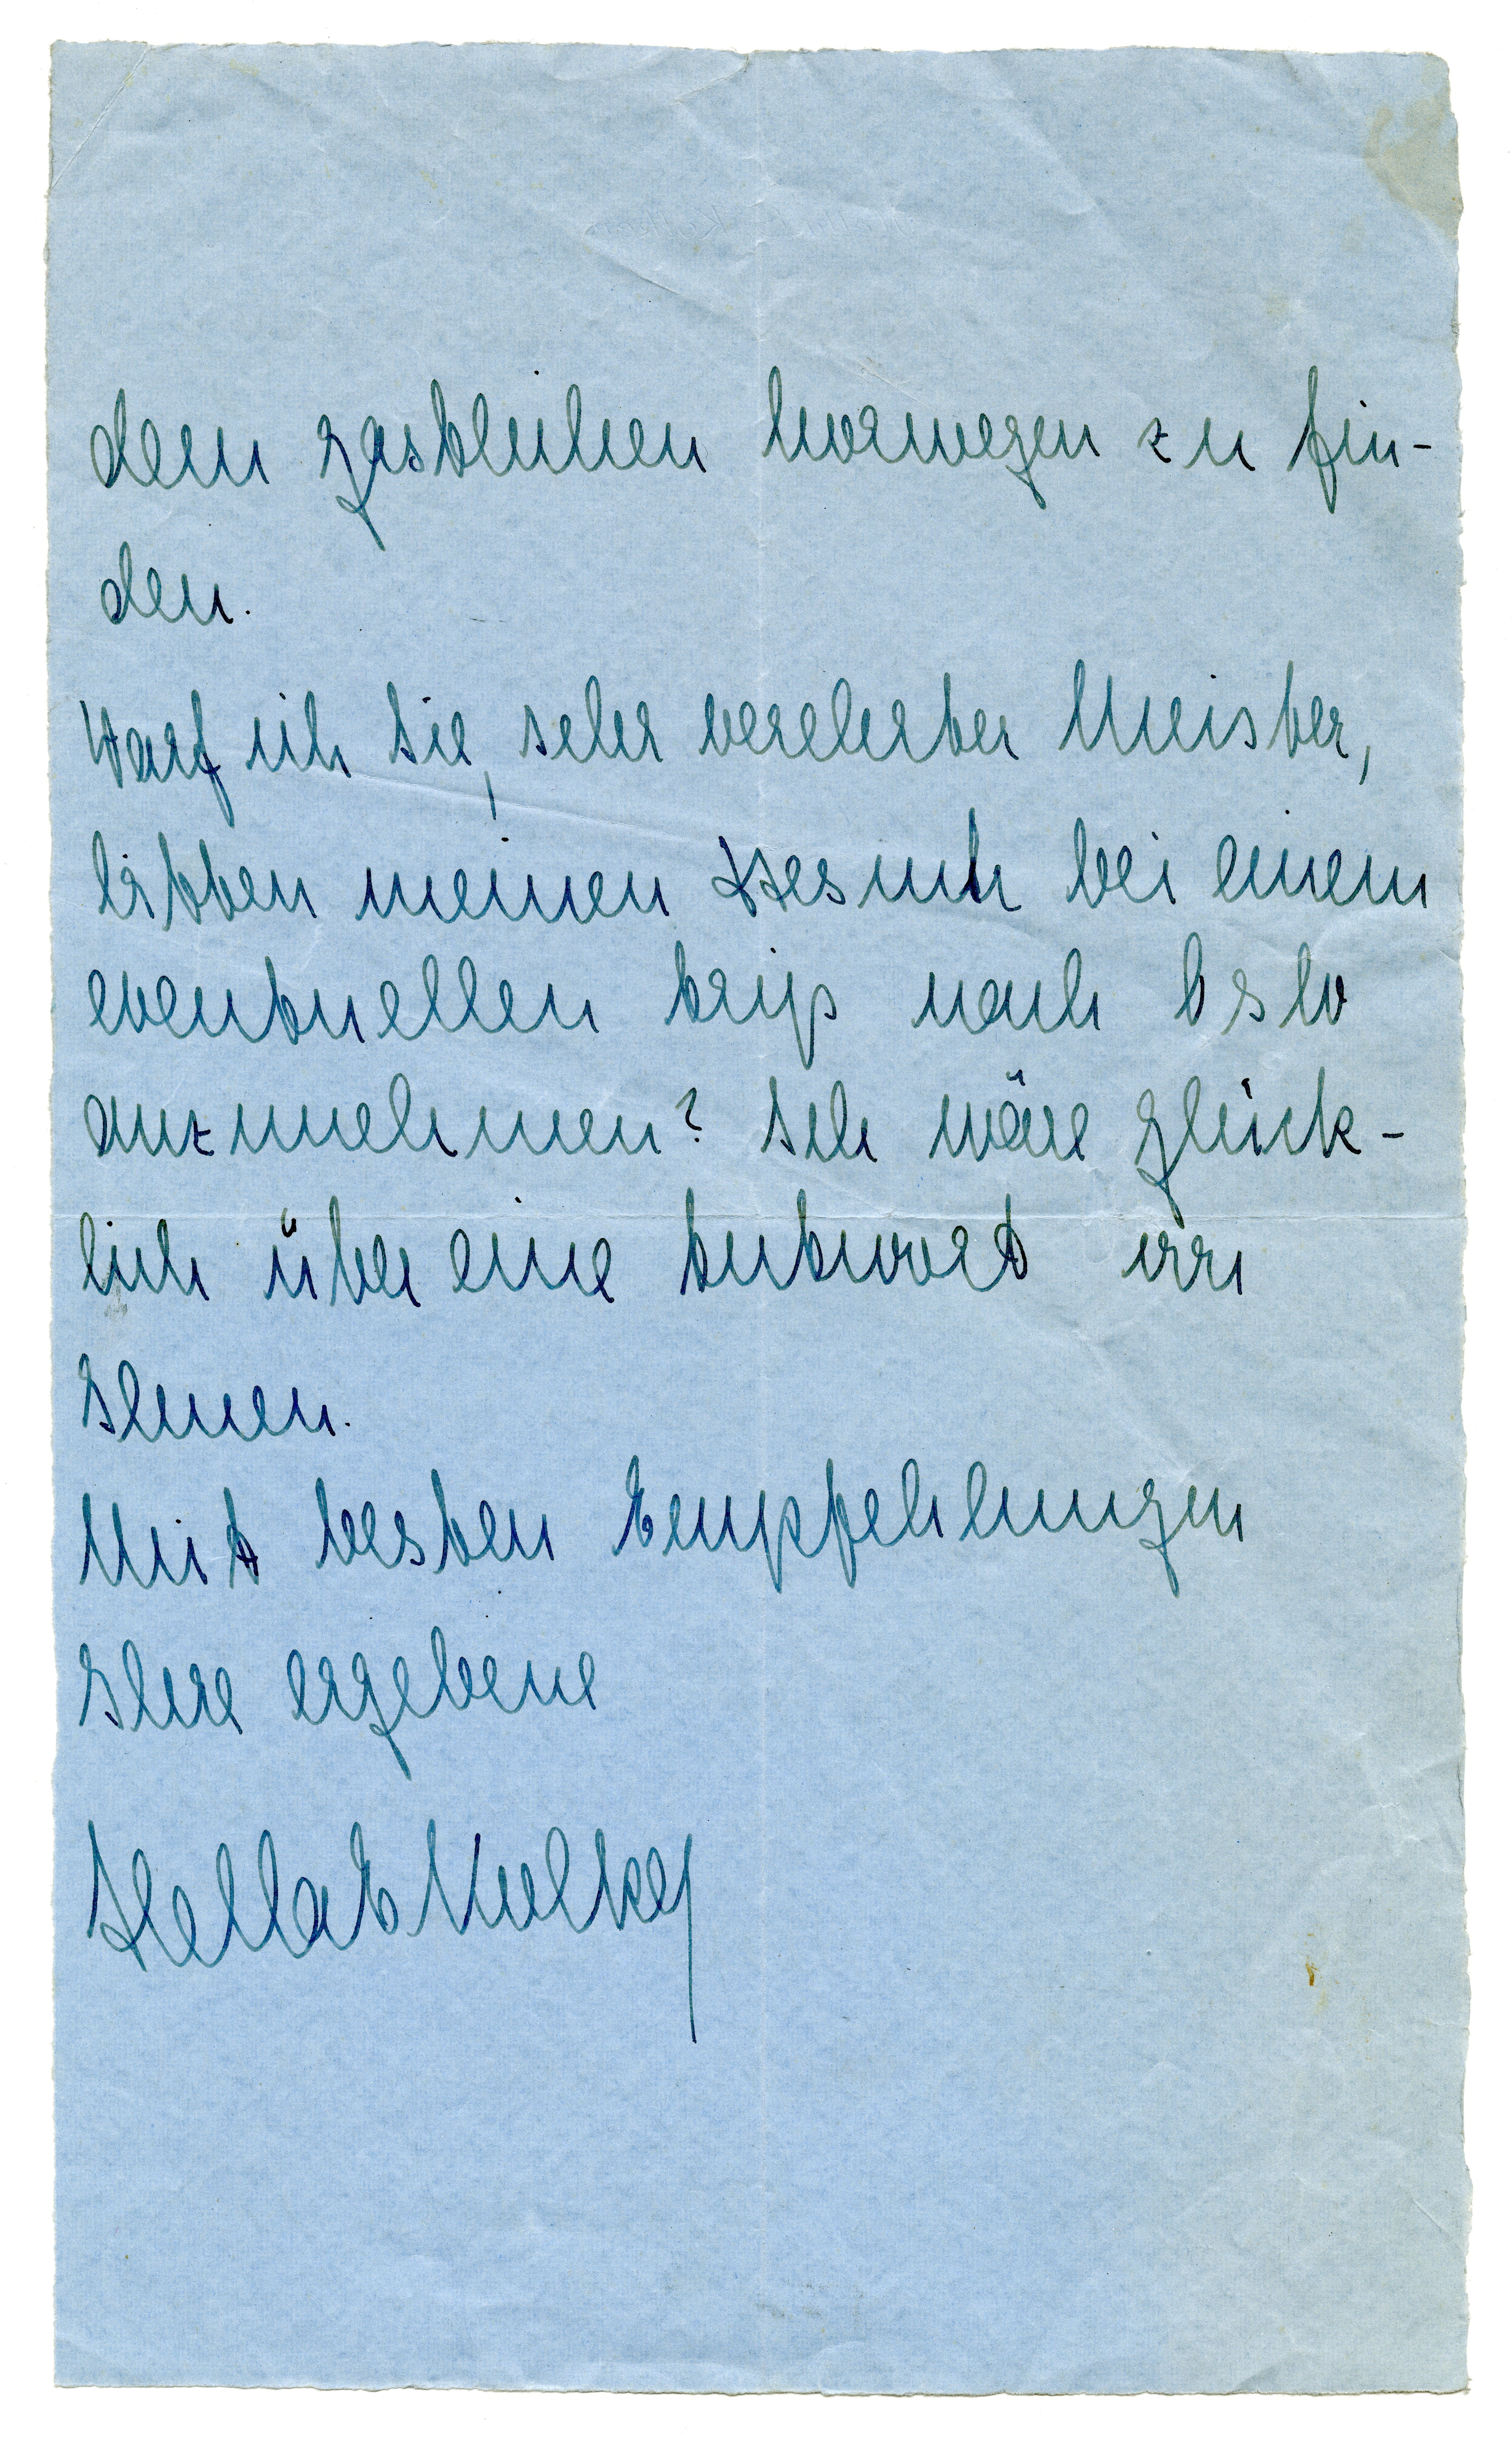 dem gastlichen Norwegen zu fin-
den.
Darf ich Sie, sehr verehrter Meister,
bitten meinen Besuch bei einem
eventuellen trip nach Oslo
anzunehmen? Ich wäre glück-
lich über eine Antwort von
Ihnen.
Mit besten Empfehlungen
Ihre ergebene
Hella E